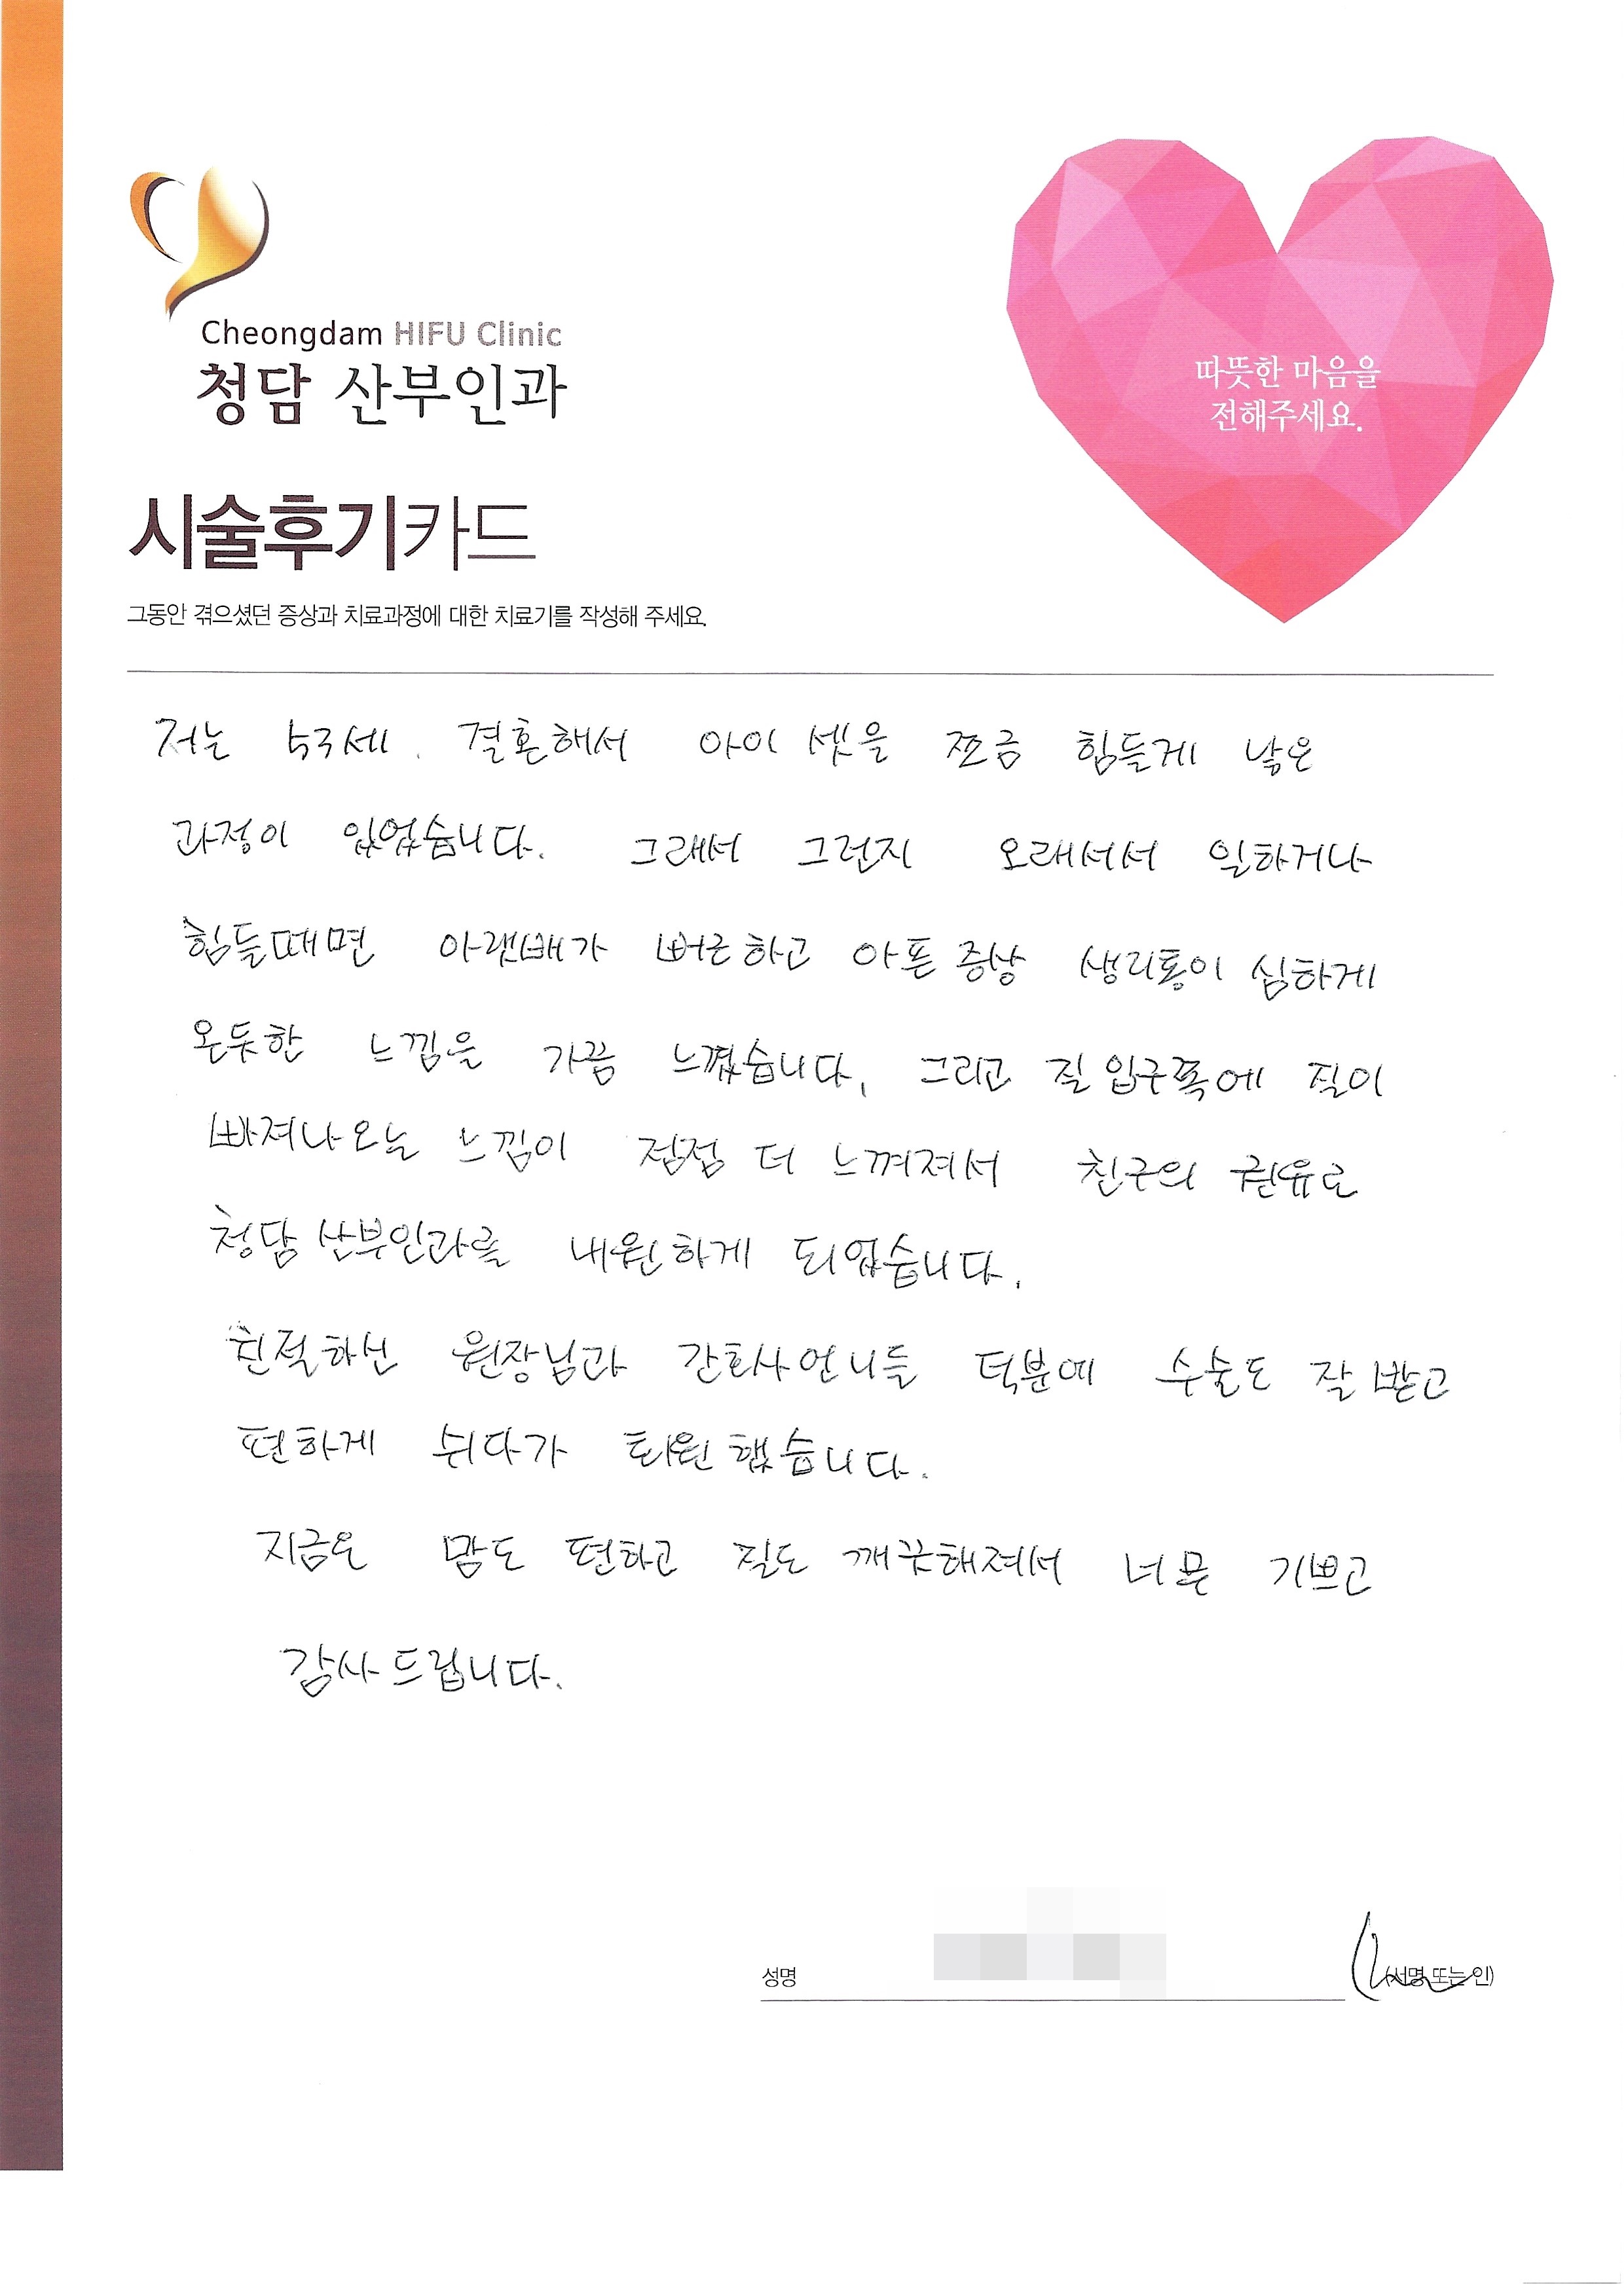 Cheongdam HIFU Clinic
청담 산부인과
따뜻한 마음을
전해주세요.
시술후기카드
그동안 겪으셨던 증상과 치료과정에 대한 치료기를 작성해 주세요.
저는 53세. 결혼해서 아이 셋을 쪼금 힘들게 낳은
과정이 있었습니다. 그래서 그런지 오래서서 일하거나
힘들때면 아랫배가 뻐근하고 아픈 증상 생리통이 심하게
온듯한 느낌을 가끔 느꼈습니다. 그리고 질 입구쪽에 질이
빠져나오는 느낌이 점점 더 느껴져서 친구의 권유로
청담 산부인과를 내원하게 되었습니다.
친절하신 원장님과 간호사언니들 덕분에 수술도 잘 받고
편하게 쉬다가 퇴원했습니다.
지금은 맘도 편하고 질도 깨끗해져서 너무 기쁘고
감사드립니다.
성명 (서명 또는 인)